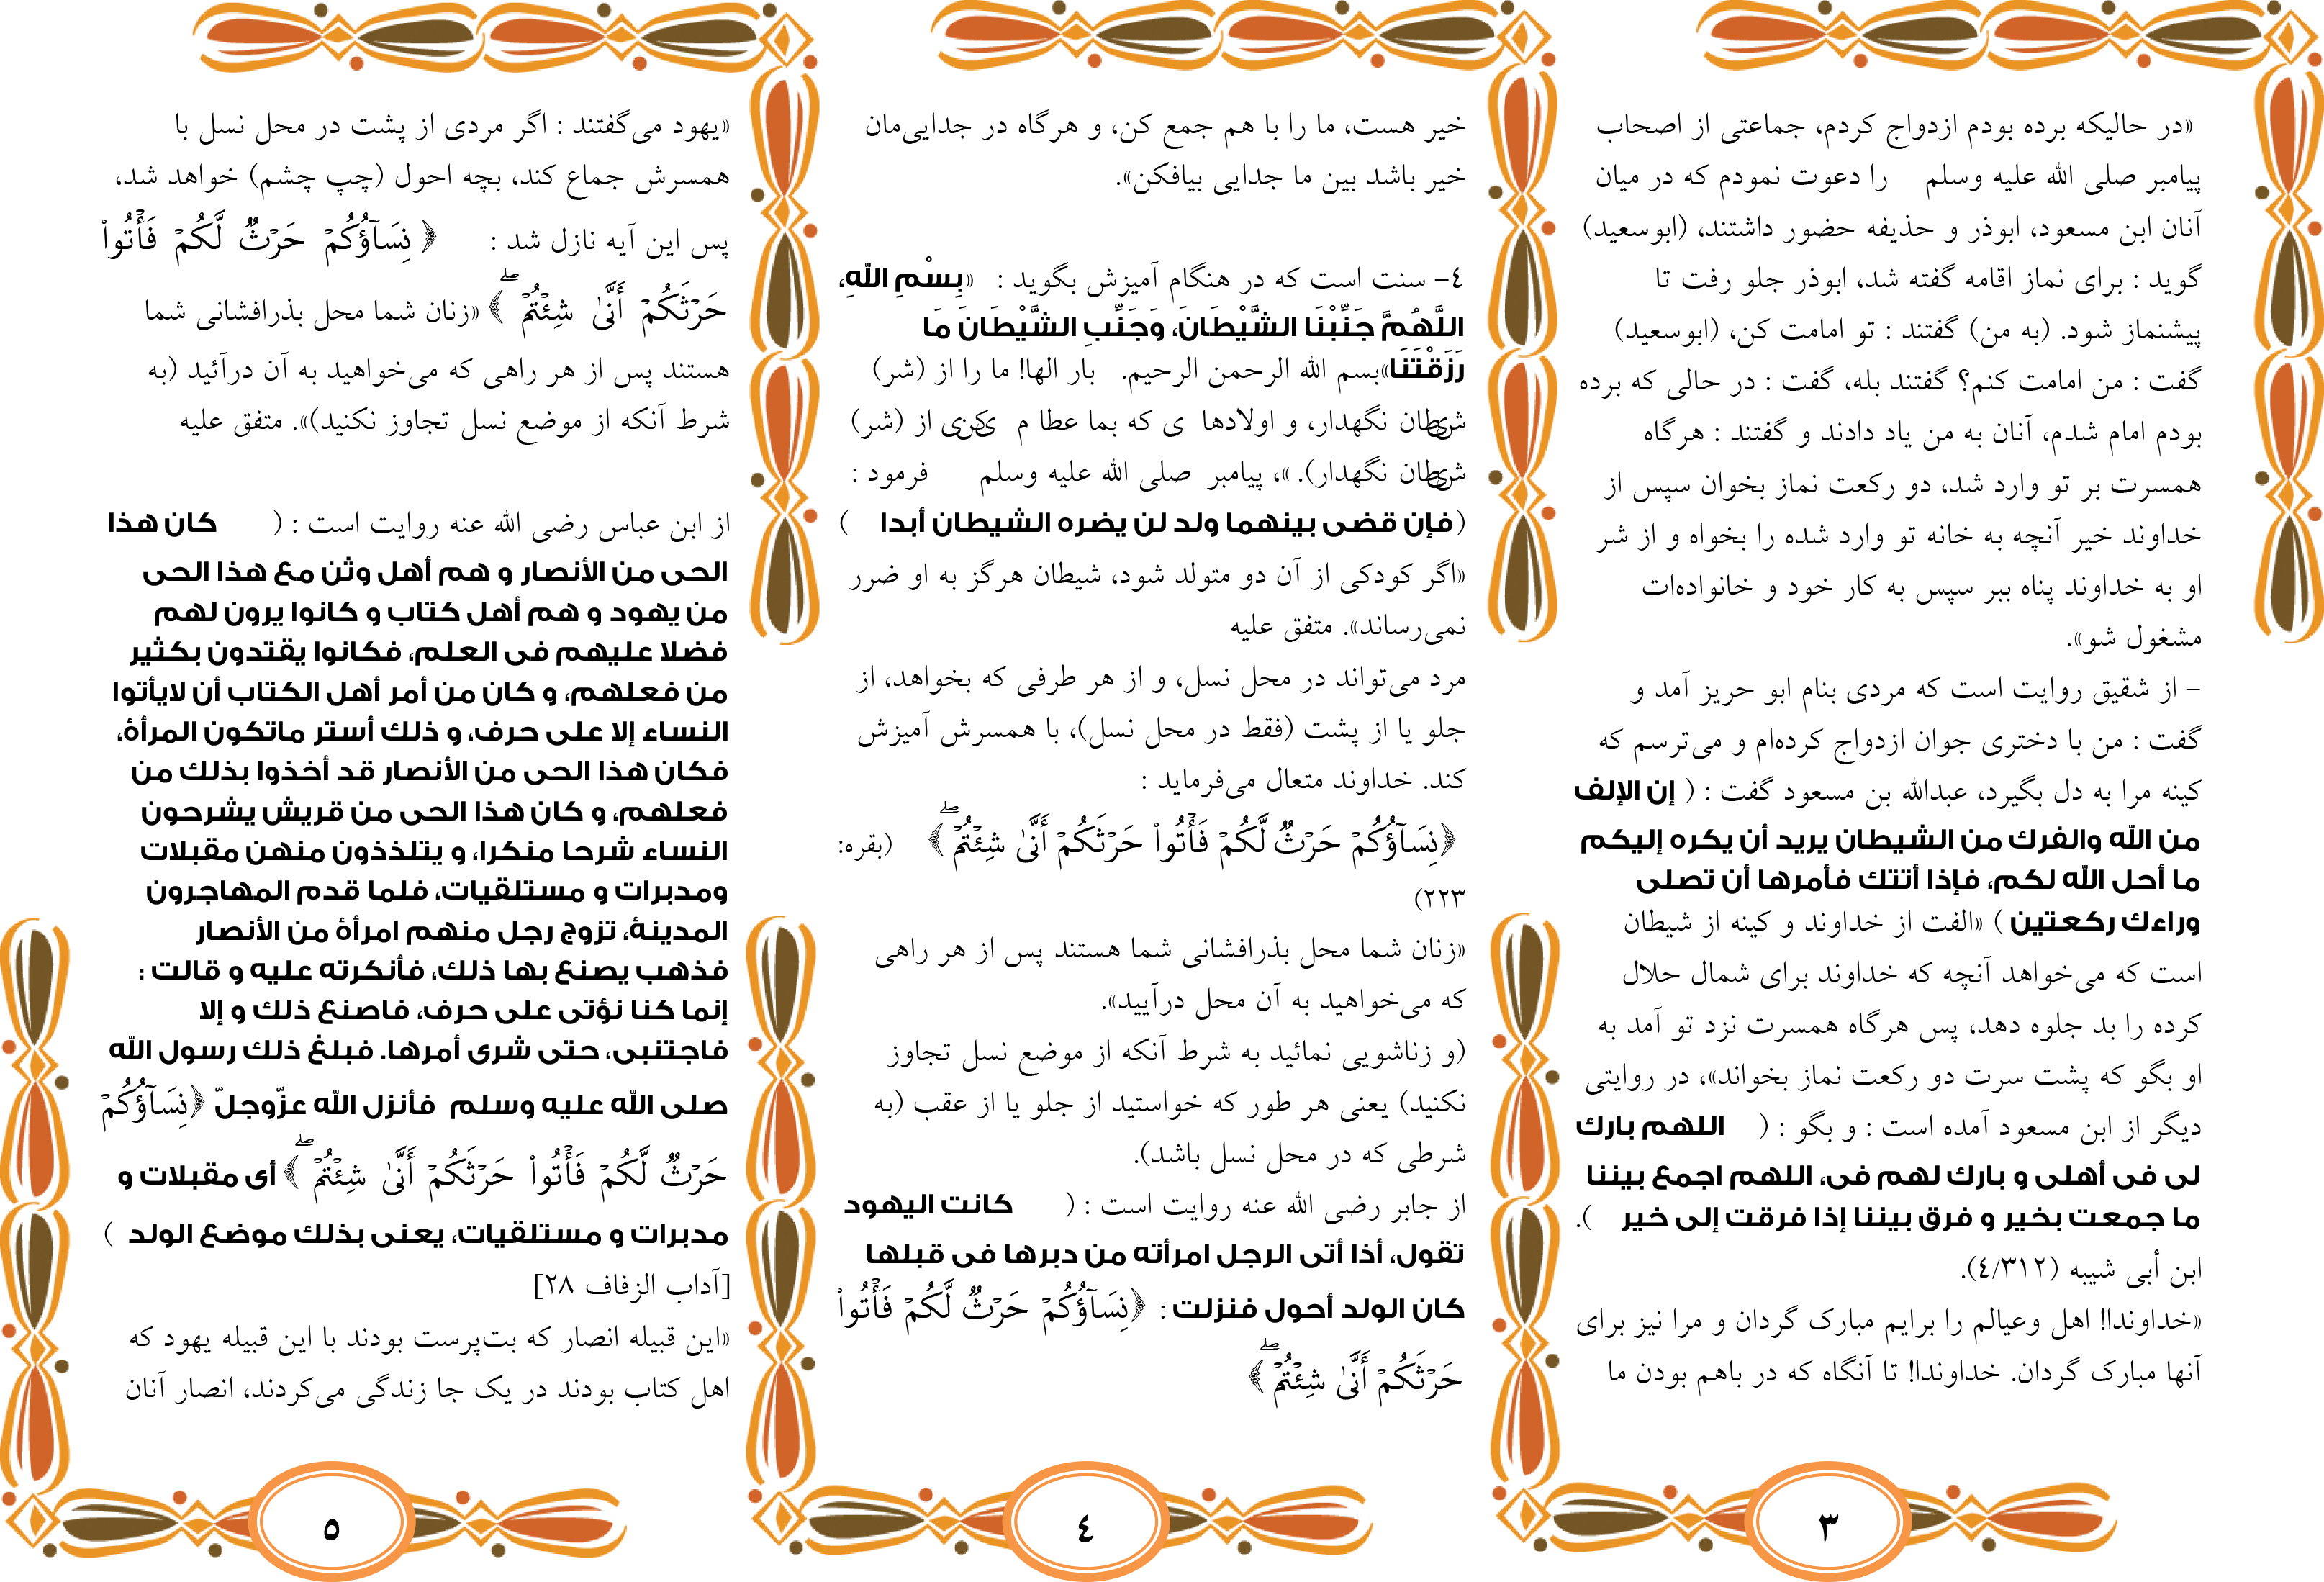 «در حالیکه برده بودم ازدواج کردم، جماعتی از اصحاب
پیامبر صلی الله علیه وسلم را دعوت نمودم که در میان
آنان ابن مسعود، ابوذر و حذیفه حضور داشتند، (ابوسعید)
گوید : برای نماز اقامه گفته شد، ابوذر جلو رفت تا
پیشنماز شود. (به من) گفتند : تو امامت کن، (ابوسعید)
گفت : من امامت کنم؟ گفتند بله، گفت : در حالی که برده
بودم امام شدم، آنان به من یاد دادند و گفتند : هرگاه
همسرت بر تو وارد شد، دو رکعت نماز بخوان سپس از
خداوند خیر آنچه به خانه تو وارد شده را بخواه و از شر
او به خداوند پناه ببر سپس به کار خود و خانواده‌ات
مشغول شو».
- از شقیق روایت است که مردی بنام ابو حریز آمد و
گفت : من با دختری جوان ازدواج کرده‌ام و می‌ترسم که
کینه مرا به دل بگیرد، عبدالله بن مسعود گفت : ( إن الإلف
من الله والفرك من الشيطان يريد أن يكره إليكم
ما أحل الله لكم، فإذا أتتك فأمرها أن تصلى
وراءك ركعتين ) «الفت از خداوند و کینه از شیطان
است که می‌خواهد آنچه که خداوند برای شمال حلال
کرده را بد جلوه دهد، پس هرگاه همسرت نزد تو آمد به
او بگو که پشت سرت دو رکعت نماز بخواند»، در روایتی
دیگر از ابن مسعود آمده است : و بگو : ( اللهم بارك
لى فى أهلى و بارك لهم فى، اللهم اجمع بيننا
ما جمعت بخير و فرق بيننا إذا فرقت إلى خير ).
ابن أبی شیبه (٤/۳۱۲).
«خداوندا! اهل وعیالم را برایم مبارک گردان و مرا نیز برای
آنها مبارک گردان. خداوندا! تا آنگاه که در باهم بودن ما
۳
خیر هست، ما را با هم جمع کن، و هرگاه در جدایی‌مان
خیر باشد بین ما جدایی بیافکن».
٤- سنت است که در هنگام آمیزش بگوید : «بِسْمِ اللهِ،
اللَّهُمَّ جَنِّبْنَا الشَّيْطَانَ، وَجَنِّبِ الشَّيْطَانَ مَا
رَزَقْتَنَا»بسم الله الرحمن الرحیم. بار الها! ما را از (شر)
شیطان نگهدار، و اولادها ی که بما عطا م ی‌کنی از (شر)
شیطان نگهدار). »، پیامبر صلی الله علیه وسلم فرمود :
(فإن قضى بينهما ولد لن يضره الشيطان أبدا )
«اگر کودکی از آن دو متولد شود، شیطان هرگز به او ضرر
نمی‌رساند». متفق علیه
مرد می‌تواند در محل نسل، و از هر طرفی که بخواهد، از
جلو یا از پشت (فقط در محل نسل)، با همسرش آمیزش
کند. خداوند متعال می‌فرماید :
﴿نِسَآؤُكُمۡ حَرۡثٞ لَّكُمۡ فَأۡتُواْ حَرۡثَكُمۡ أَنَّىٰ شِئۡتُمۡۖ﴾ (بقره:
۲۲۳)
«زنان شما محل بذرافشانی شما هستند پس از هر راهی
که می‌خواهید به آن محل درآیید».
(و زناشویی نمائید به شرط آنکه از موضع نسل تجاوز
نکنید) یعنی هر طور که خواستید از جلو یا از عقب (به
شرطی که در محل نسل باشد).
از جابر رضی الله عنه روایت است : ( كانت اليهود
تقول، أذا أتى الرجل امرأته من دبرها فى قبلها
كان الولد أحول فنزلت : ﴿نِسَآؤُكُمۡ حَرۡثٞ لَّكُمۡ فَأۡتُواْ
حَرۡثَكُمۡ أَنَّىٰ شِئۡتُمۡۖ﴾
٤
«یهود می‌گفتند : اگر مردی از پشت در محل نسل با
همسرش جماع کند، بچه احول (چپ چشم) خواهد شد،
پس این آیه نازل شد : ﴿ نِسَآؤُكُمۡ حَرۡثٞ لَّكُمۡ فَأۡتُواْ
حَرۡثَكُمۡ أَنَّىٰ شِئۡتُمۡۖ ﴾ «زنان شما محل بذرافشانی شما
هستند پس از هر راهی که می‌خواهید به آن درآئید (به
شرط آنکه از موضع نسل تجاوز نکنید)». متفق علیه
از ابن عباس رضی الله عنه روایت است : ( كان هذا
الحى من الأنصار و هم أهل وثن مع هذا الحى
من يهود و هم أهل كتاب و كانوا يرون لهم
فضلا عليهم فى العلم، فكانوا يقتدون بكثير
من فعلهم، و كان من أمر أهل الكتاب أن لايأتوا
النساء إلا على حرف، و ذلك أستر ماتكون المرأة،
فكان هذا الحى من الأنصار قد أخذوا بذلك من
فعلهم، و كان هذا الحى من قريش يشرحون
النساء شرحا منكرا، و يتلذذون منهن مقبلات
ومدبرات و مستلقيات، فلما قدم المهاجرون
المدينة، تزوج رجل منهم امرأة من الأنصار
فذهب يصنع بها ذلك، فأنكرته عليه و قالت :
إنما كنا نؤتى على حرف، فاصنع ذلك و إلا
فاجتنبى، حتى شرى أمرها. فبلغ ذلك رسول الله
صلى الله عليه وسلم فأنزل الله عزّوجلّ ﴿نِسَآؤُكُمۡ
حَرۡثٞ لَّكُمۡ فَأۡتُواْ حَرۡثَكُمۡ أَنَّىٰ شِئۡتُمۡۖ ﴾ أى مقبلات و
مدبرات و مستلقيات، يعنى بذلك موضع الولد )
[آداب الزفاف ۲۸]
«این قبیله انصار که بت‌پرست بودند با این قبیله یهود که
اهل کتاب بودند در یک جا زندگی می‌کردند، انصار آنان
٥